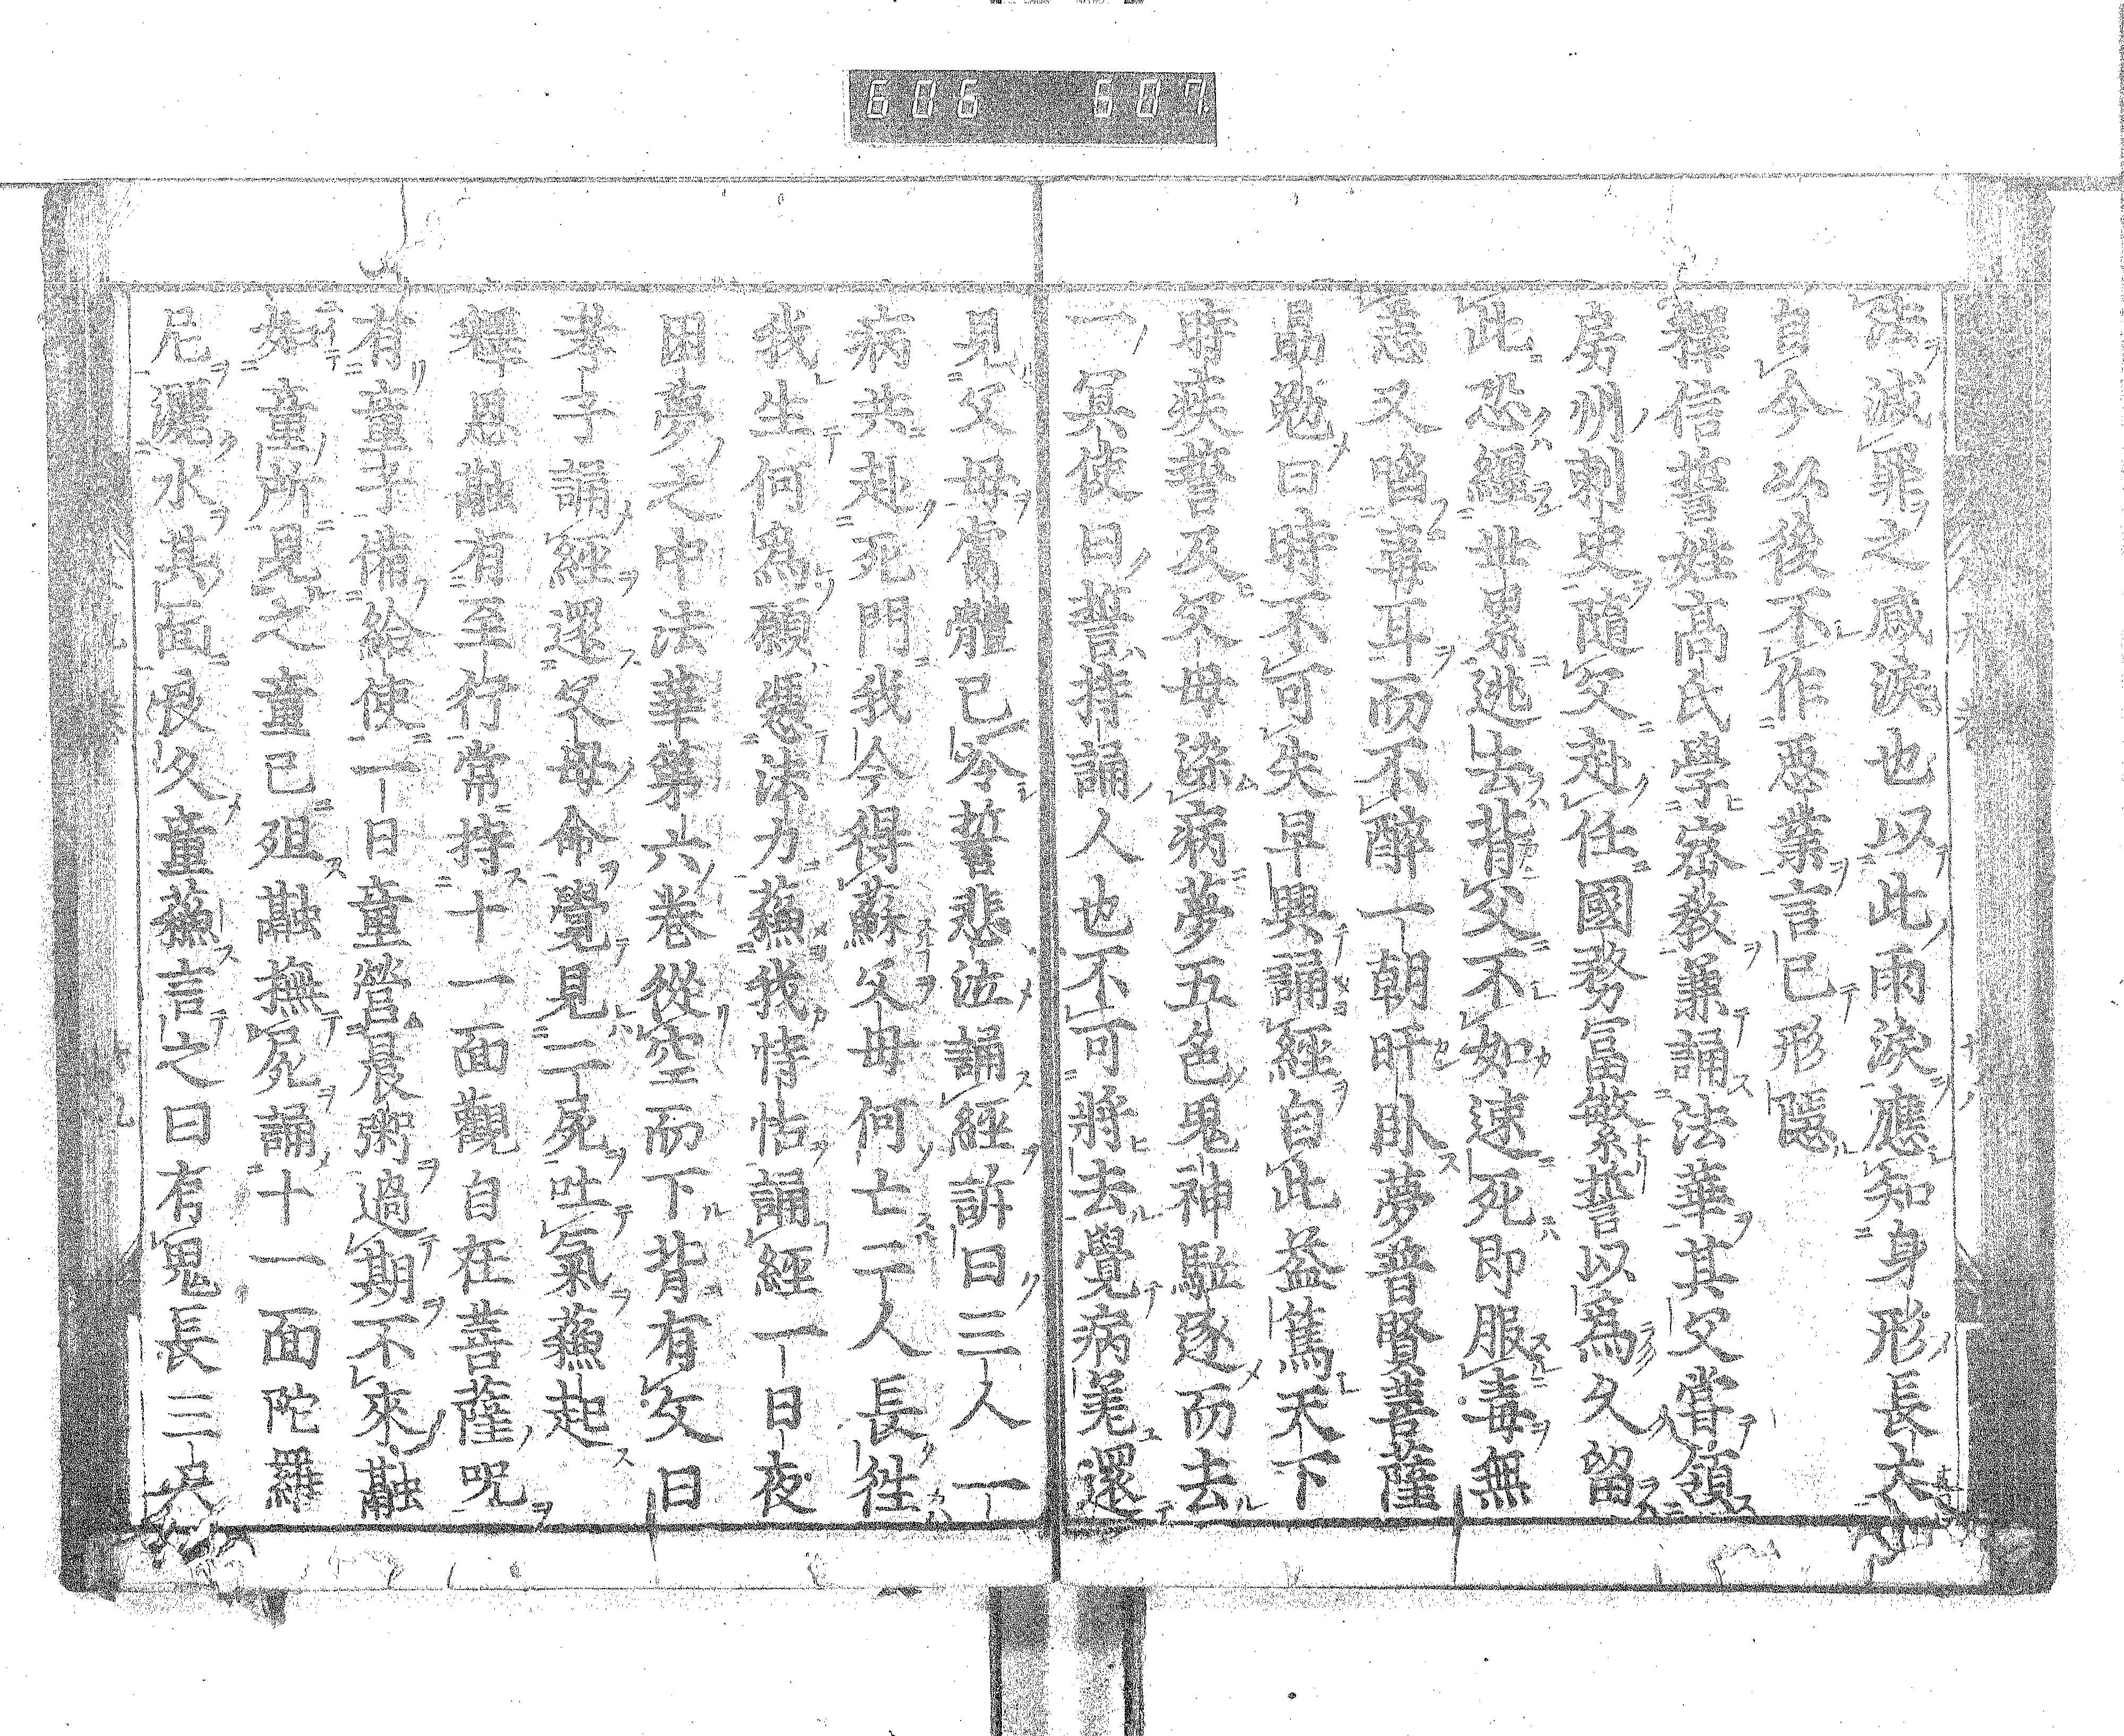 606 607
法滅罪之感淚也以此雨淚應知身形長大
自今以後不作惡業言已形隱
釋信誓姓高氏學密教兼誦法華其父嘗領
房州刺史隨父赴任國務富繁誓以爲久留
此恐纏世累逃去背父不如速死即服毒無
恙又啗毒耳而不醉一朝旰臥夢普賢菩薩
勗勉曰時不可失早興誦經自此益篤天下
時疾誓及父母染病夢五色鬼神駈逐而去
一冥使曰誓持誦人也不可將去覺病差還
見父母膚體已冷誓悲泣誦經訴曰三人一
病共赴死門我今得蘇父母何亡二人長往
我生何爲願惑法力蘓我恃怙誦經一日夜
因夢之中法華第六卷從空而下背有文曰
孝子誦經還父母命覺見二死吐氣蘓起
釋恩融有至行常持十一面觀自在菩薩呪
有童子備給使一日童營晨粥過期不來融
如童所見之童已殂融撫屍誦十一面陀羅
尼灑水其面良久童蘓言之曰有鬼長三尺